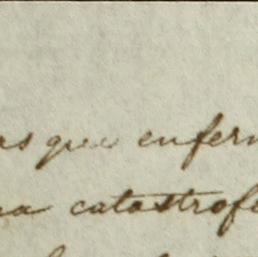 as que enferm
na catastrofe